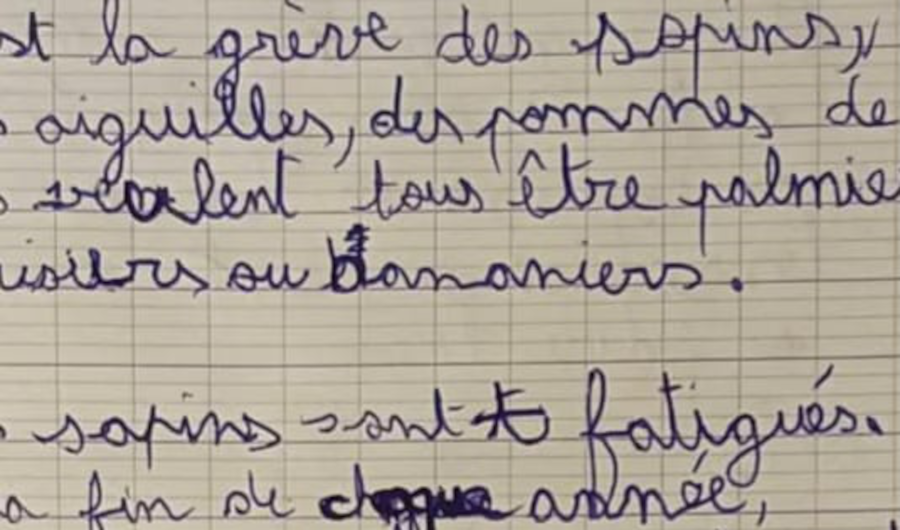 st la grève des sapins,
s aiguilles, des pommes de
s veulent tous être palmie
uisiers ou bananiers.
s sapins sont fatigués.
a fin de chaque année,